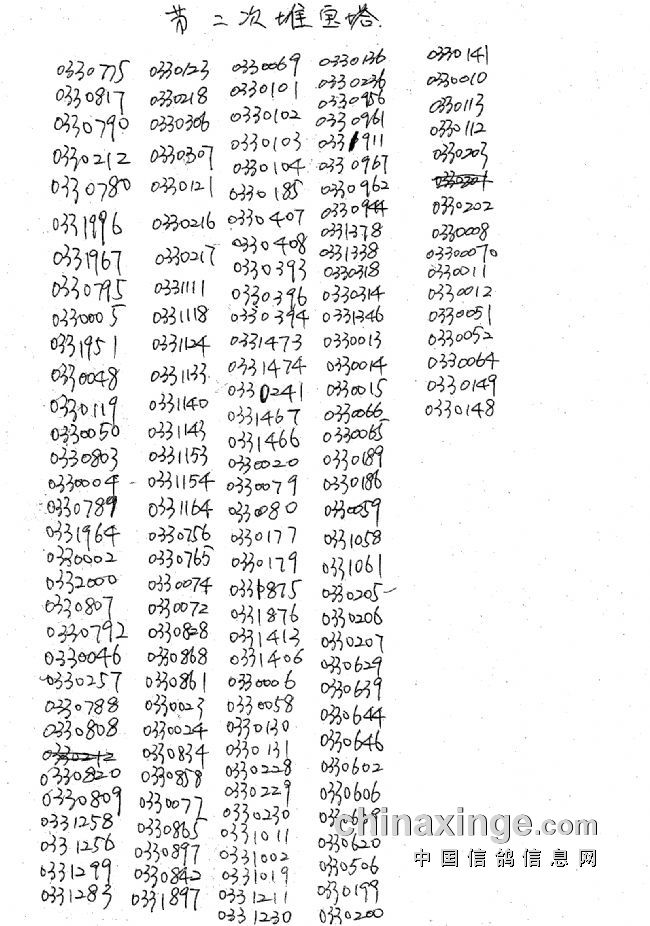 第二次堆宝塔
0330775
0330817
0330790
0330212
0330780
0331996
0331967
0330795
0330005
0331951
0330048
0330119
0330050
0330803
0330004
0330789
0331964
0330002
0332000
0330807
0330792
0330046
0330257
0330788
0330808
0330212
0330820
0330809
0331258
0331256
0331299
0331283
0330123
0330218
0330306
0330307
0330121
0330216
0330217
0331111
0331118
0331124
0331133
0331140
0331143
0331153
0331154
0331164
0330756
0330765
0330074
0330072
0330828
0330868
0330861
0330023
0330024
0330834
0330858
0330077
0330865
0330897
0330842
0331897
0330069
0330101
0330102
0330103
0330104
0330185
0330407
0330408
0330393
0330396
0330394
0331473
0331474
0330241
0331467
0331466
0330020
0330079
0330080
0330177
0330179
0331875
0331876
0331413
0331406
0330006
0330058
0330130
0330131
0330228
0330229
0330230
0331011
0331002
0331019
0331211
0331230
0330136
0330236
0330956
0330961
0331911
0330967
0330962
0330944
0331378
0331338
0330318
0330314
0331346
0330013
0330014
0330015
0330066
0330065
0330189
0330186
0330059
0331058
0331061
0330205
0330206
0330207
0330629
0330639
0330644
0330646
0330602
0330606
0330620
0330506
0330199
0330200
0330141
0330010
0330113
0330112
0330203
0330202
0330008
03300070
0330011
0330012
0330051
0330052
0330064
0330149
0330148
chinaxinge.com
中国信鸽信息网